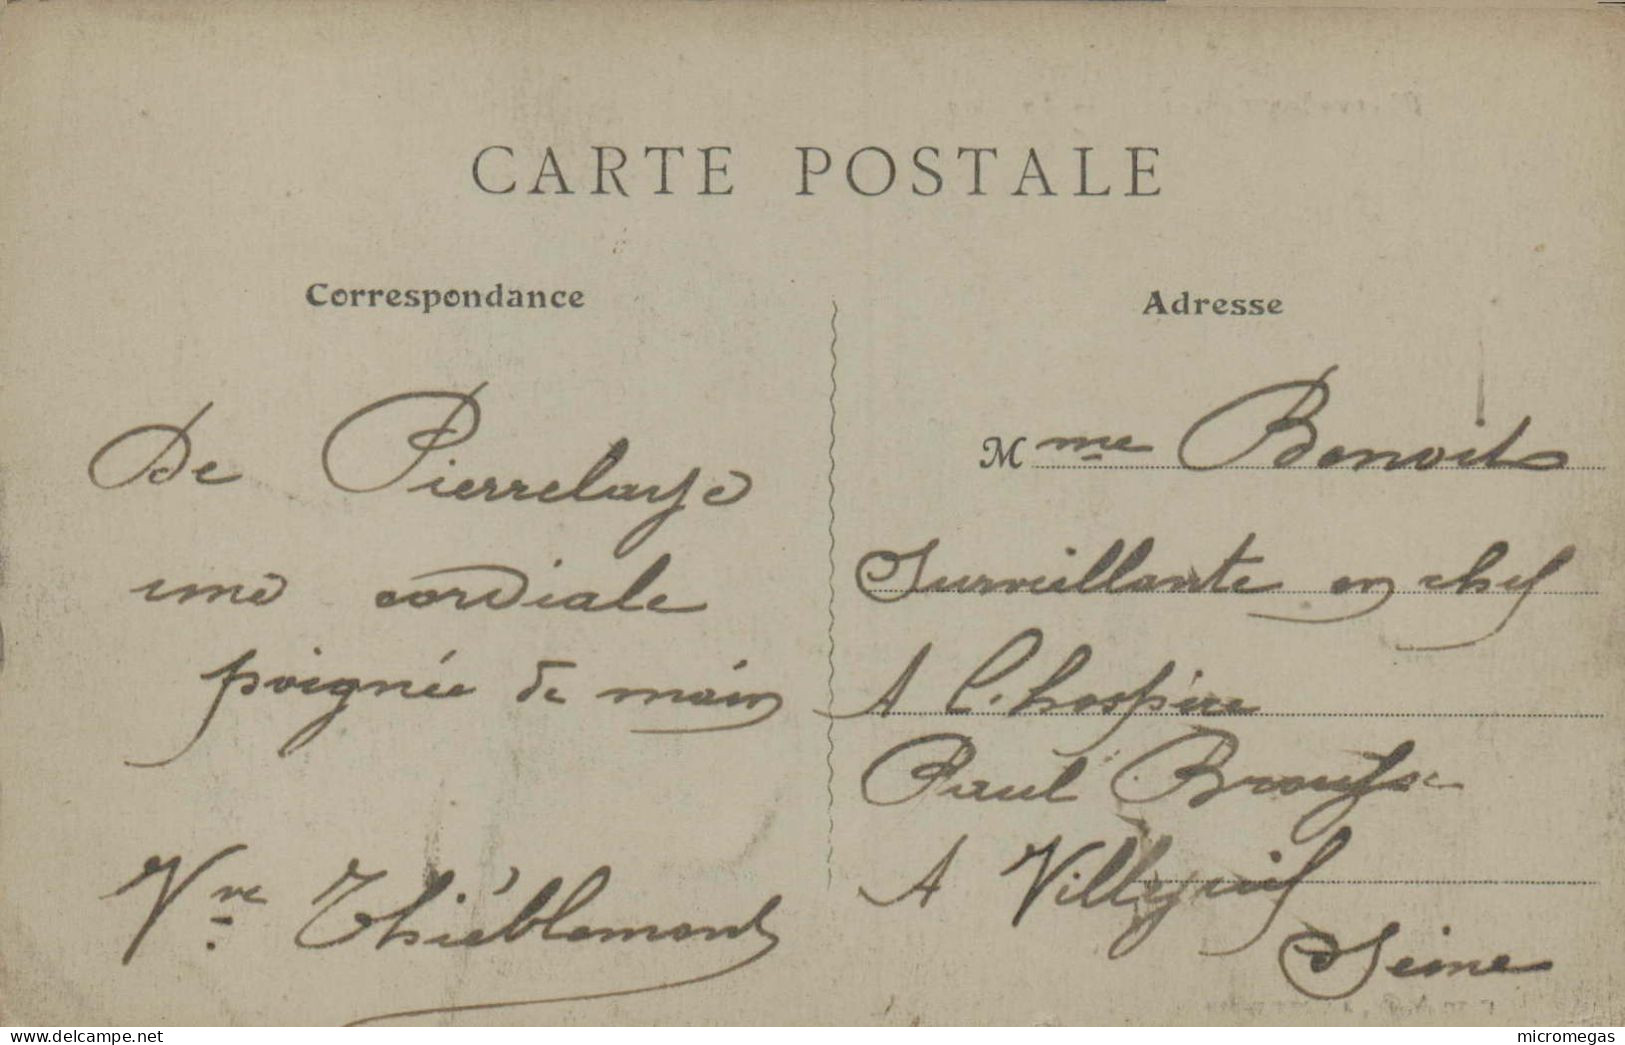 CARTE POSTALE
Correspondance
De Pierrelaye
une cordiale
poignée de main
Vve Thiéblemont
Adresse
Mme Benoit
Surveillante en chef
A l'hospice
Paul Brousse
A Villejuif
Seine
delcampe.net
micromegas